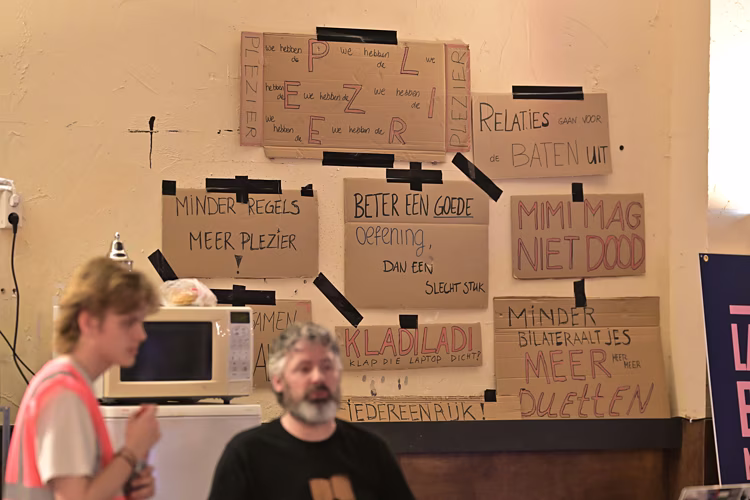 PLEZIER
we hebben de P we hebben de L we
hebben de E we hebben de Z we hebben de I
we hebben de E we hebben de R
PLEZIER
RELATIES GAAN VOOR
de BATEN UIT
MINDER REGELS
MEER PLEZIER
!
BETER EEN GOEDE
Oefening,
DAN EEN
SLECHT STUK
MIMI MAG
NIET DOOD
SAMEN
KLADILADI
KLAP DIE LAPTOP DICHT!
MINDER
BILATERAALTJES
MEER
MEER
DUETTEN
IEDEREEN RIJK!